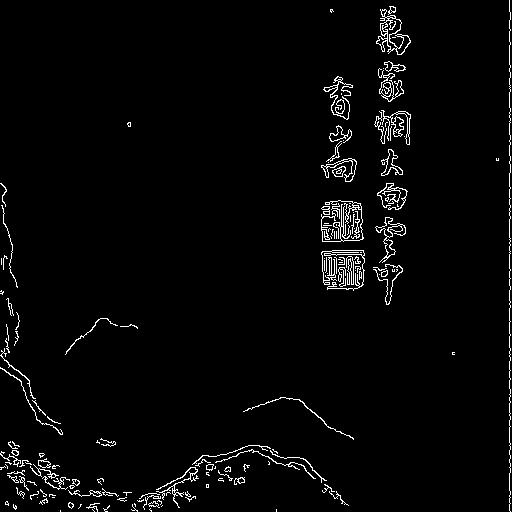 萬家烟火白雲中
香山向